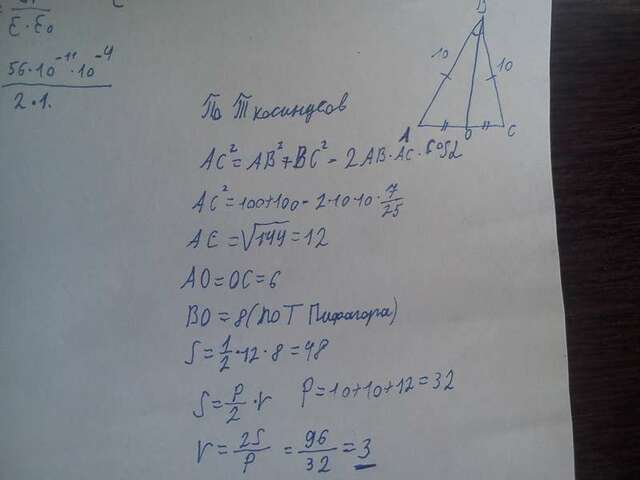 ε·ε₀
56·10⁻¹¹·10⁻⁴
2·1.
B
10
10
A
O
C
По Т косинусов
AC²=AB²+BC²-2AB·AC·cosα
AC²=100+100-2·10·10·7/25
AC=√144=12
AO=OC=6
BO=8(по Т Пифагора)
S=1/2·12·8=48
S=P/2·r P=10+10+12=32
r=2S/P=96/32=3